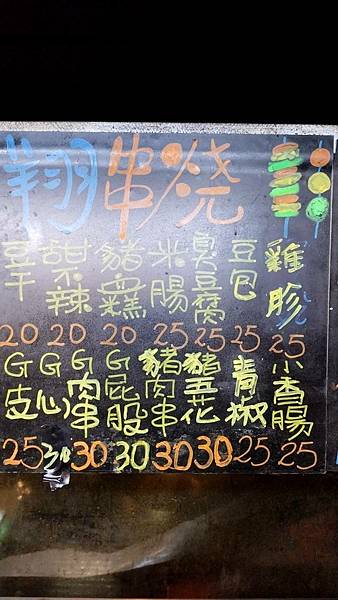 翔串烧
豆干
20
甜不辣
20
豬血糕
20
米腸
25
臭豆腐
25
豆包
25
雞胗
25
G皮
25
G心
30
G肉串
30
G屁股
30
豬肉串
30
豬五花
30
青椒
25
小香腸
25